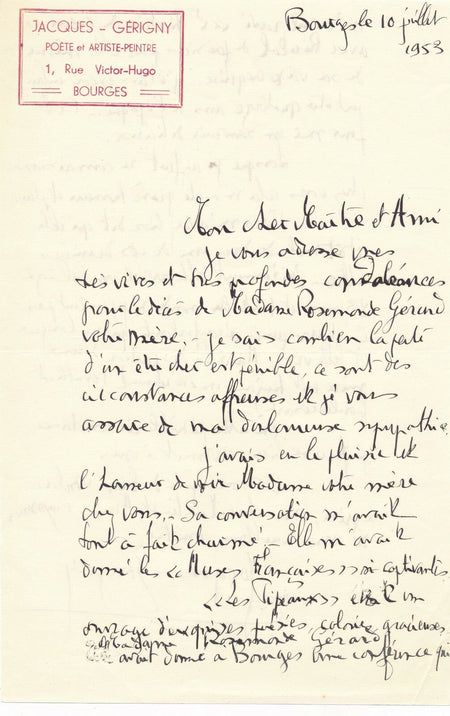 JACQUES - GÉRIGNY
POÈTE et ARTISTE-PEINTRE
1, Rue Victor-Hugo
BOURGES
Bourges le 10 juillet
1953
Mon cher Maître et Ami
je vous adresse mes
très vives et très profondes condoléances
pour le décès de Madame Rosemonde Gérard
votre mère, - je sais combien la perte
d'un être cher est pénible, ce sont des
circonstances affreuses et je vous
assure de ma douloureuse sympathie.
j'avais eu le plaisir et
l'honneur de voir Madame votre mère
chez vous. - Sa conversation m'avait
tout à fait charmé - Elle m'avait
donné les « Muses françaises » si captivantes
« Les Pipeaux » était un
ouvrage d'exquises poésies, gracieuses
Madame Rosemonde Gérard
avait donné à Bourges une conférence qui